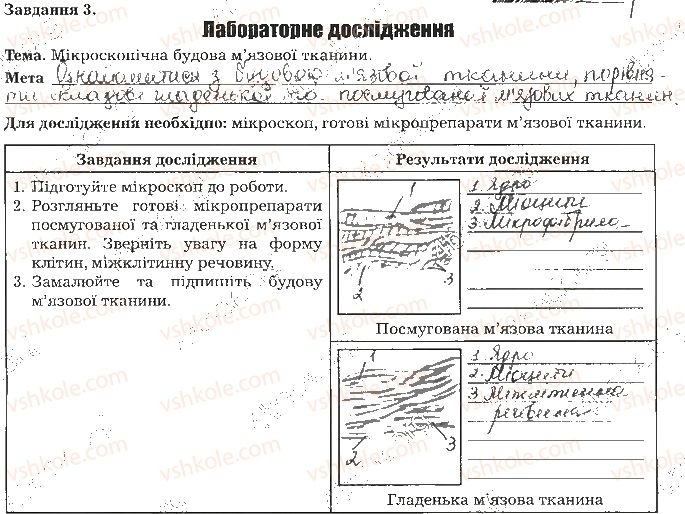 Завдання 3.
Лабораторне дослідження
Тема. Мікроскопічна будова м'язової тканини.
Мета Ознайомитися з будовою м'язової тканини, порівня-
ти складові гладенької та посмугованої м'язових тканин.
Для дослідження необхідно: мікроскоп, готові мікропрепарати м'язової тканини.
Завдання дослідження
1. Підготуйте мікроскоп до роботи.
2. Розгляньте готові мікропрепарати
посмугованої та гладенької м'язової
тканин. Зверніть увагу на форму
клітин, міжклітинну речовину.
3. Замалюйте та підпишіть будову
м'язової тканини.
Результати дослідження
1
2
3
1. Ядро
2. Міоцити
3. Мікрофібрила
Посмугована м'язова тканина
1
2
3
1. Ядро
2. Міоцити
3. Міжклітинна
речовина
Гладенька м'язова тканина
vshkole.com